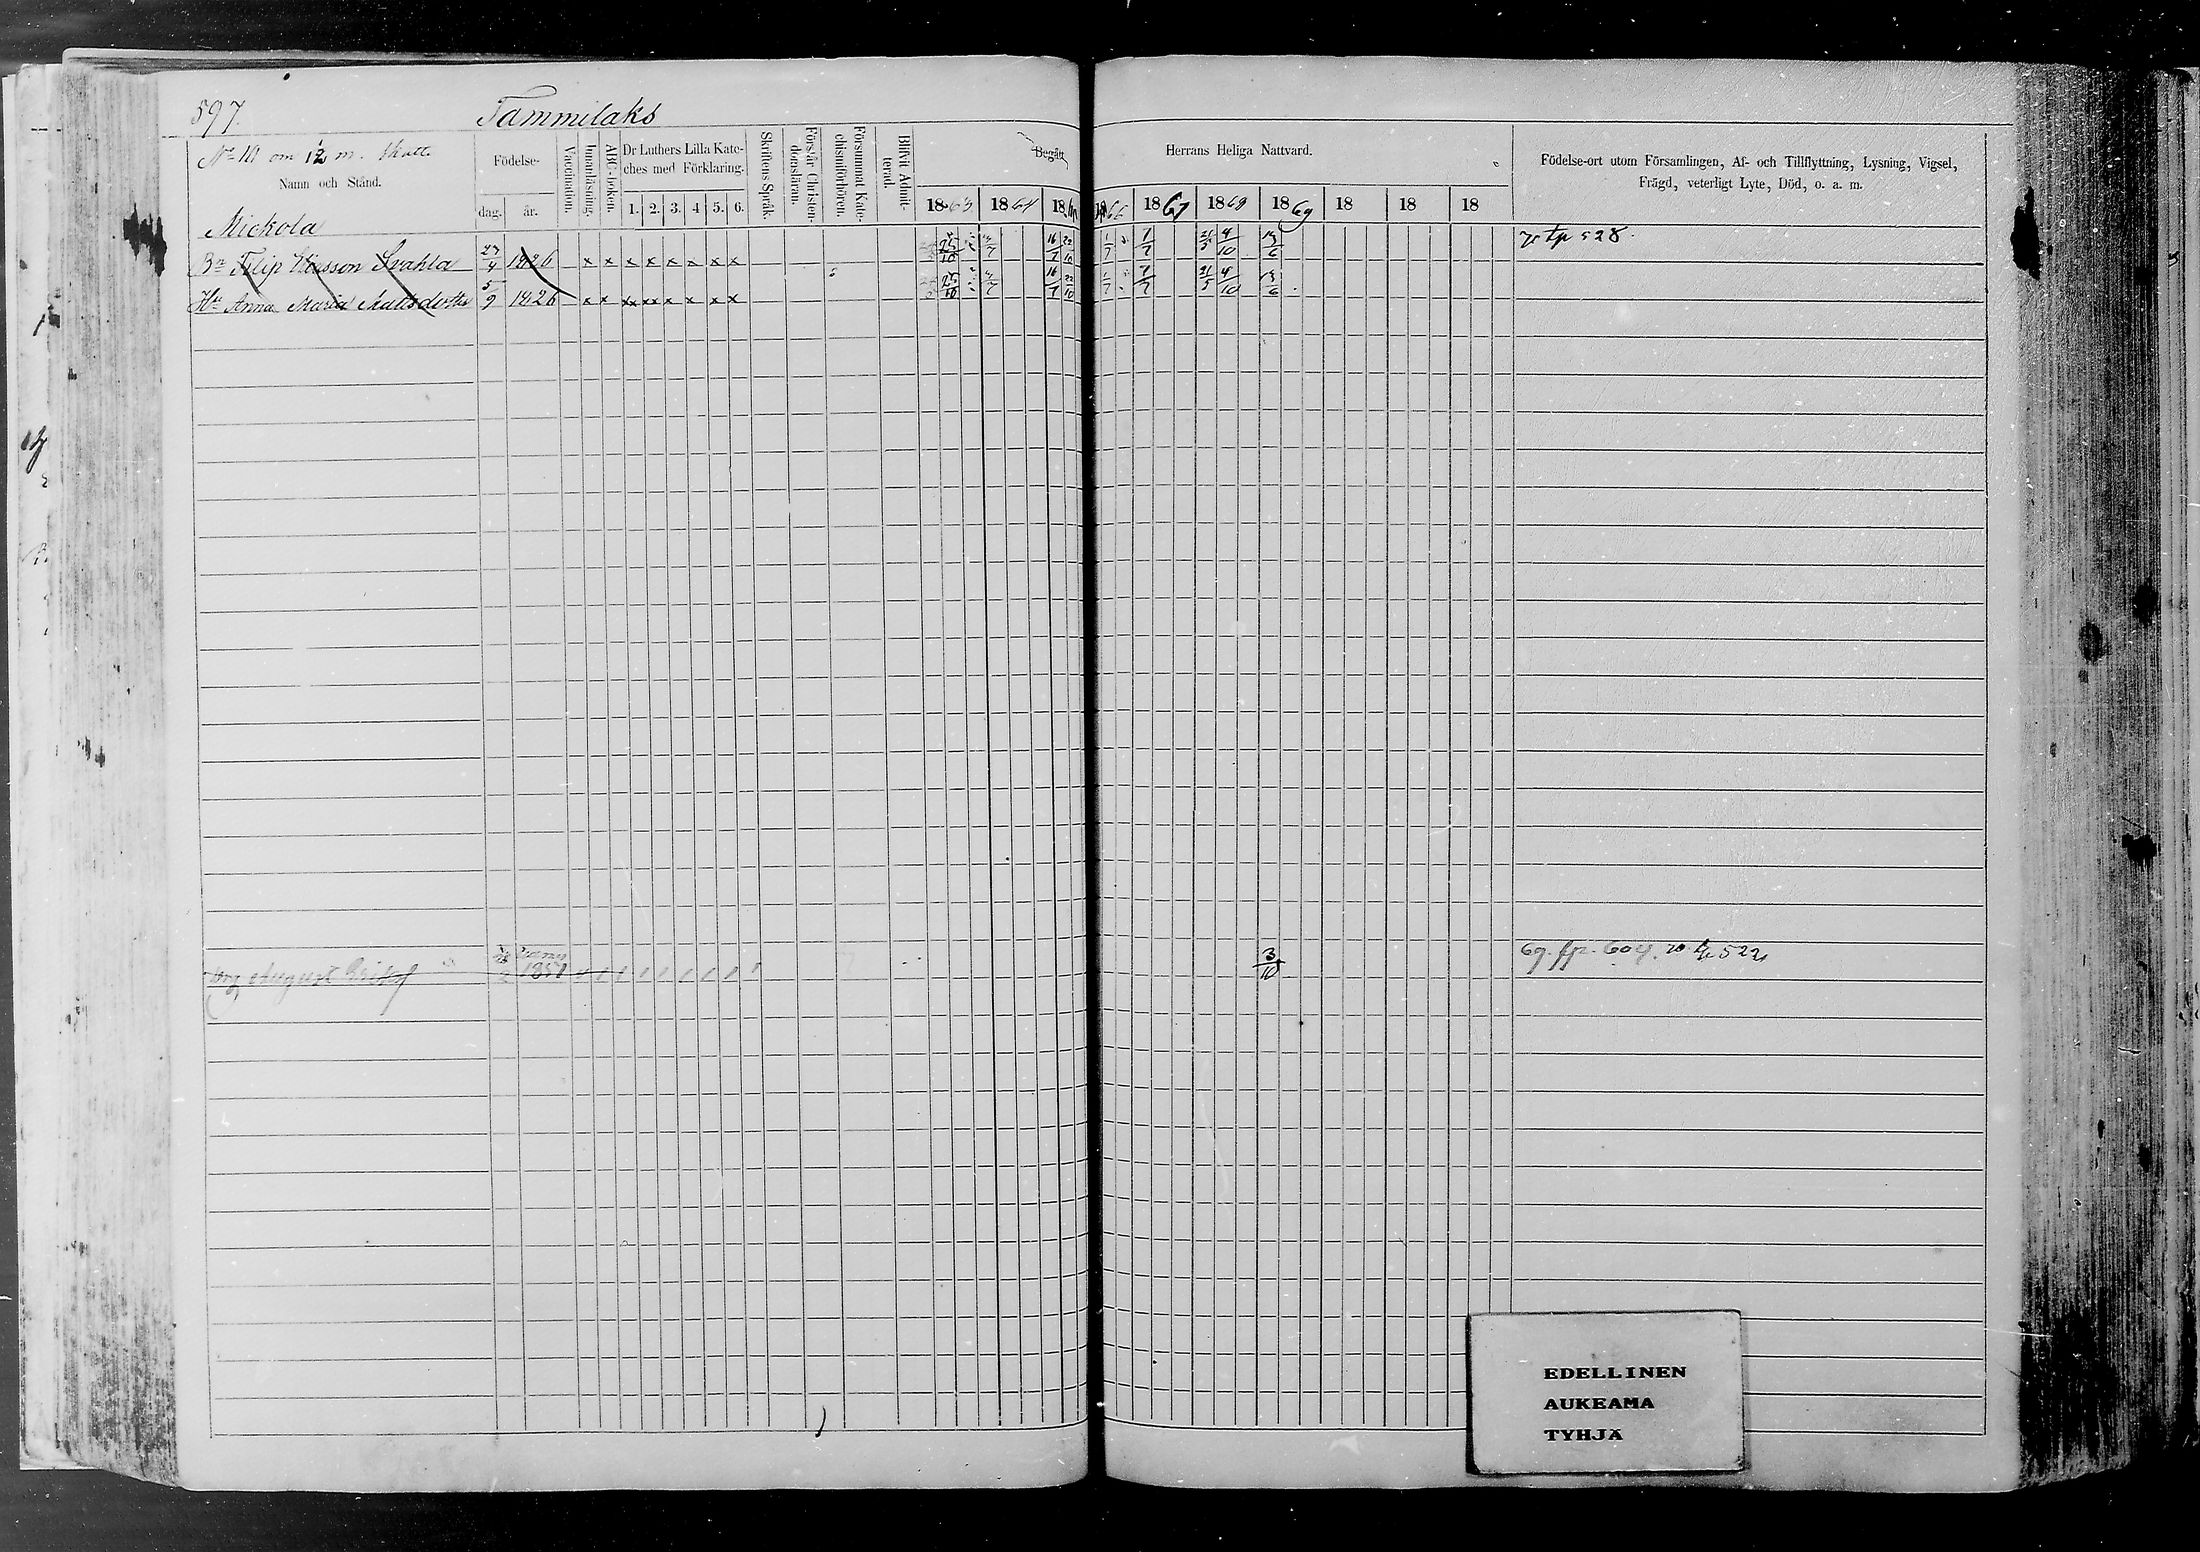 597.
Tammilaks
No 10 om 1/2 m. Skatt.
Namn och Stånd.
Födelse-
dag. år.
Vaccination.
Innanläsning.
ABC-boken.
Dr Luthers Lilla Kate-
ches med Förklaring.
1. 2. 3. 4 5. 6.
Skriftens Språk.
Förstår Christen-
domsläran.
Försummat Kate-
chismiförhören.
Blifvit Admit-
terad.
Begått Herrans Heliga Nattvard.
1863 1864 18 1866 1867 1868 1869 18 18 18
Födelse-ort utom Församlingen, Af- och Tillflyttning, Lysning, Vigsel,
Frägd, veterligt Lyte, Död, o. a. m.
Mickola
Bn Filip Eliasson 27/4 1826 x x x x x x x x 25/10 7 16/7 22/10 1/7 7/7 21/5 4/10 6 tp 528.
Hu Anna Maria Mattsdotter 5/9 1826 x x x x x x x x 25/10 7 16/7 22/10 1/7 7/7 21/5 4/10 6
August 185 3/10 69. fp. 604. 70 tp 522
EDELLINEN
AUKEAMA
TYHJÄ